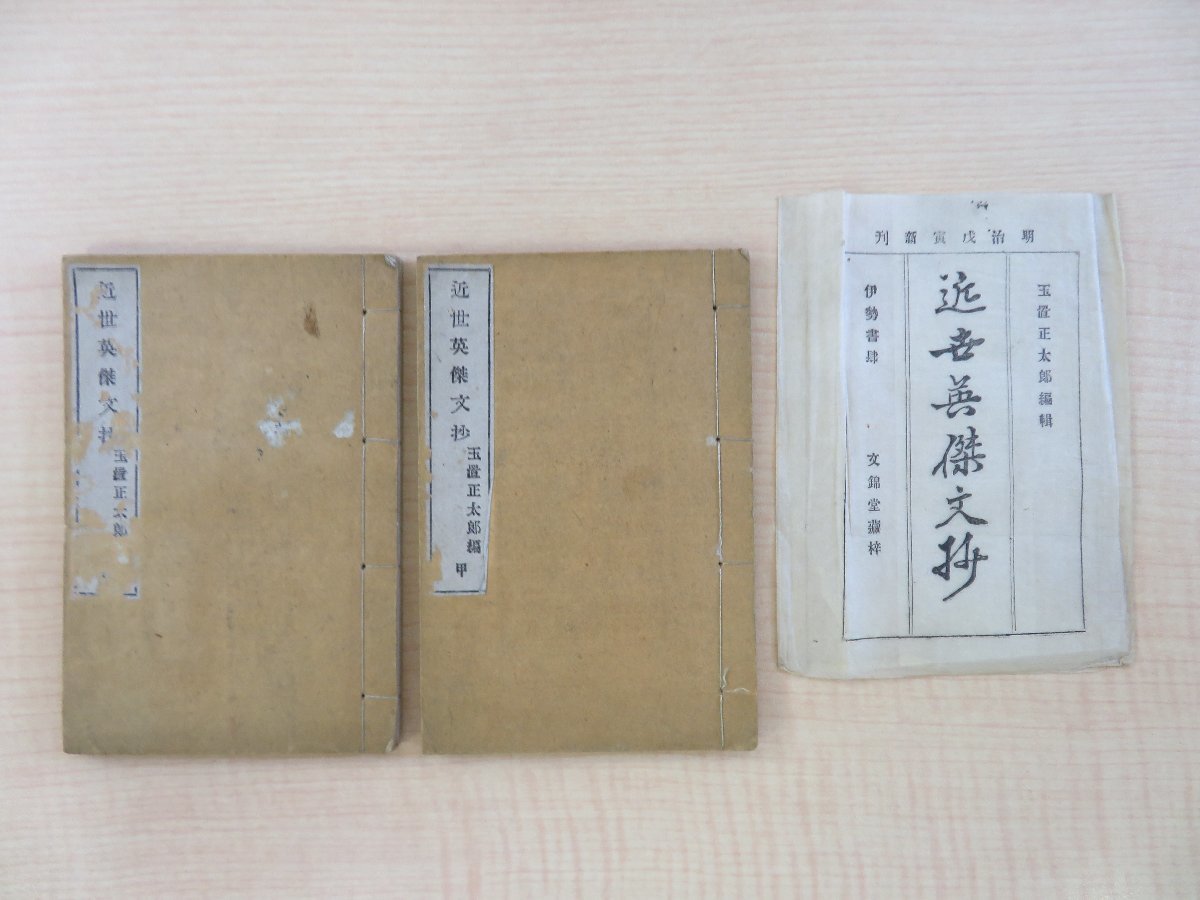 近世英傑文抄
玉置正太郎
近世英傑文抄
玉置正太郎編
甲
明治戊寅新刊
玉置正太郎編輯
近世英傑文抄
伊勢書肆 文錦堂蔵梓